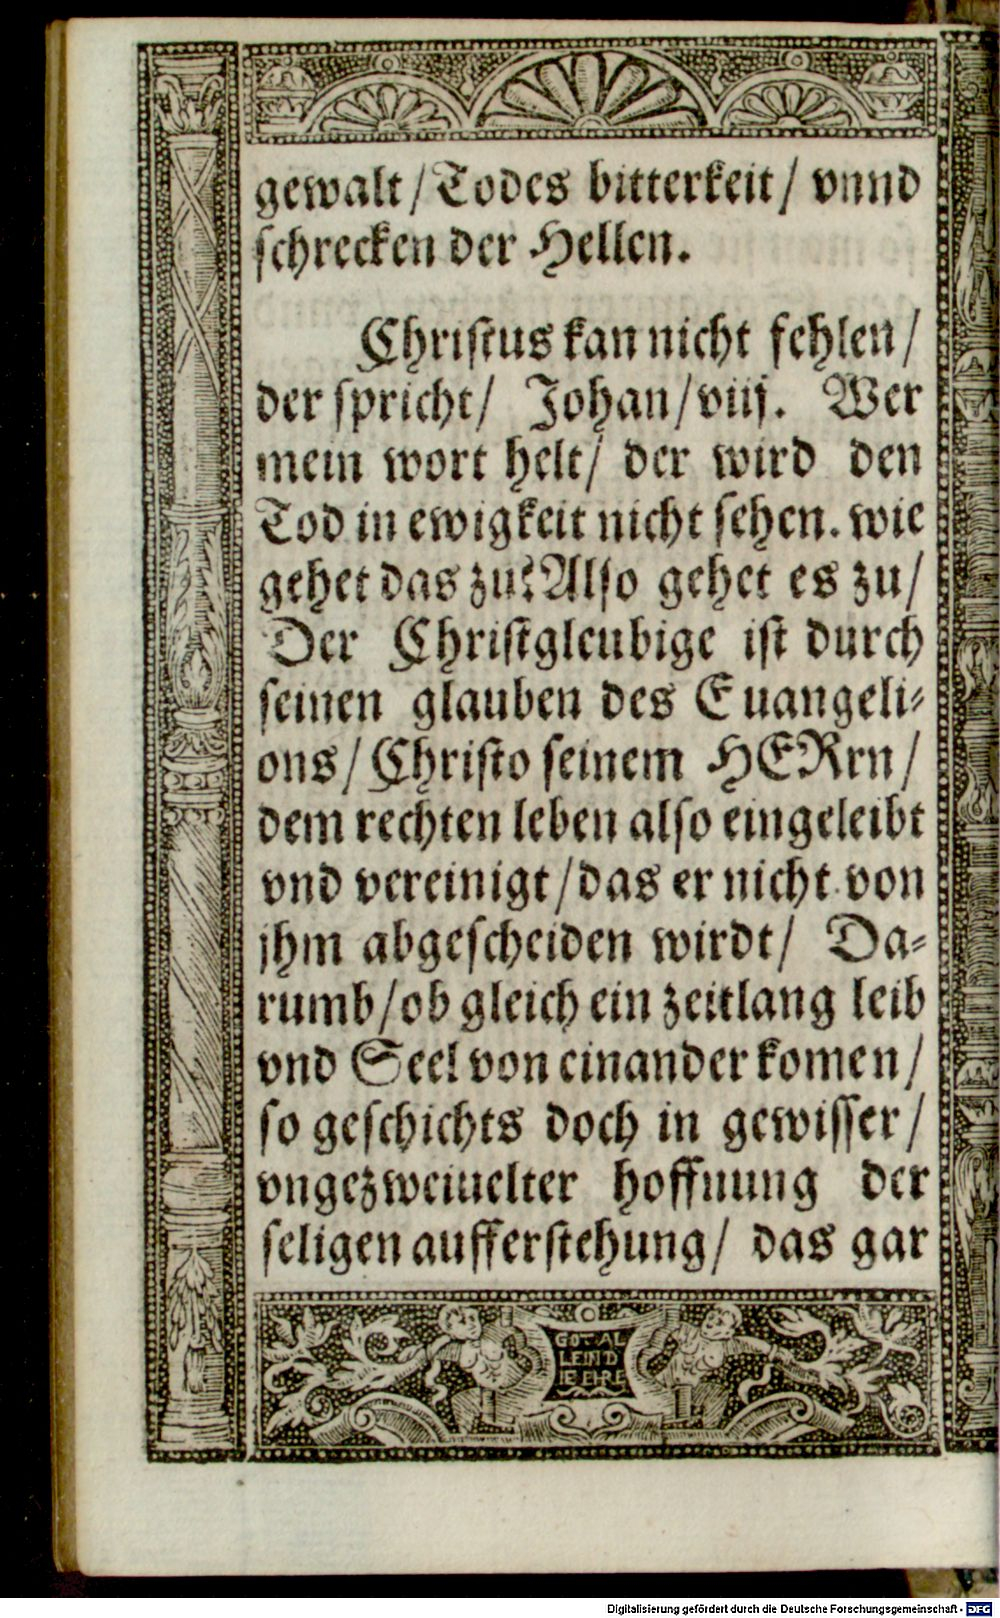 gewalt/ Todes bitterkeit/ vnnd
schrecken der Hellen.
Christus kan nicht fehlen/
der spricht/ Johan/ viij. Wer
mein wort helt/ der wird den
Tod in ewigkeit nicht sehen. wie
gehet das zu? Also gehet es zu/
Der Christgleubige ist durch
seinen glauben des Euangeli⸗
ons/ Christo seinem HERrn/
dem rechten leben also eingeleibt
vnd vereinigt/ das er nicht von
jhm abgescheiden wirdt/ Da⸗
rumb/ ob gleich ein zeitlang leib
vnd Seel von einander komen/
so geschichts doch in gewisser/
vngezweiuelter hoffnung der
seligen aufferstehung/ das gar
GOT AL
LEIN D
IE EHRE
Digitalisierung gefördert durch die Deutsche Forschungsgemeinschaft - DFG